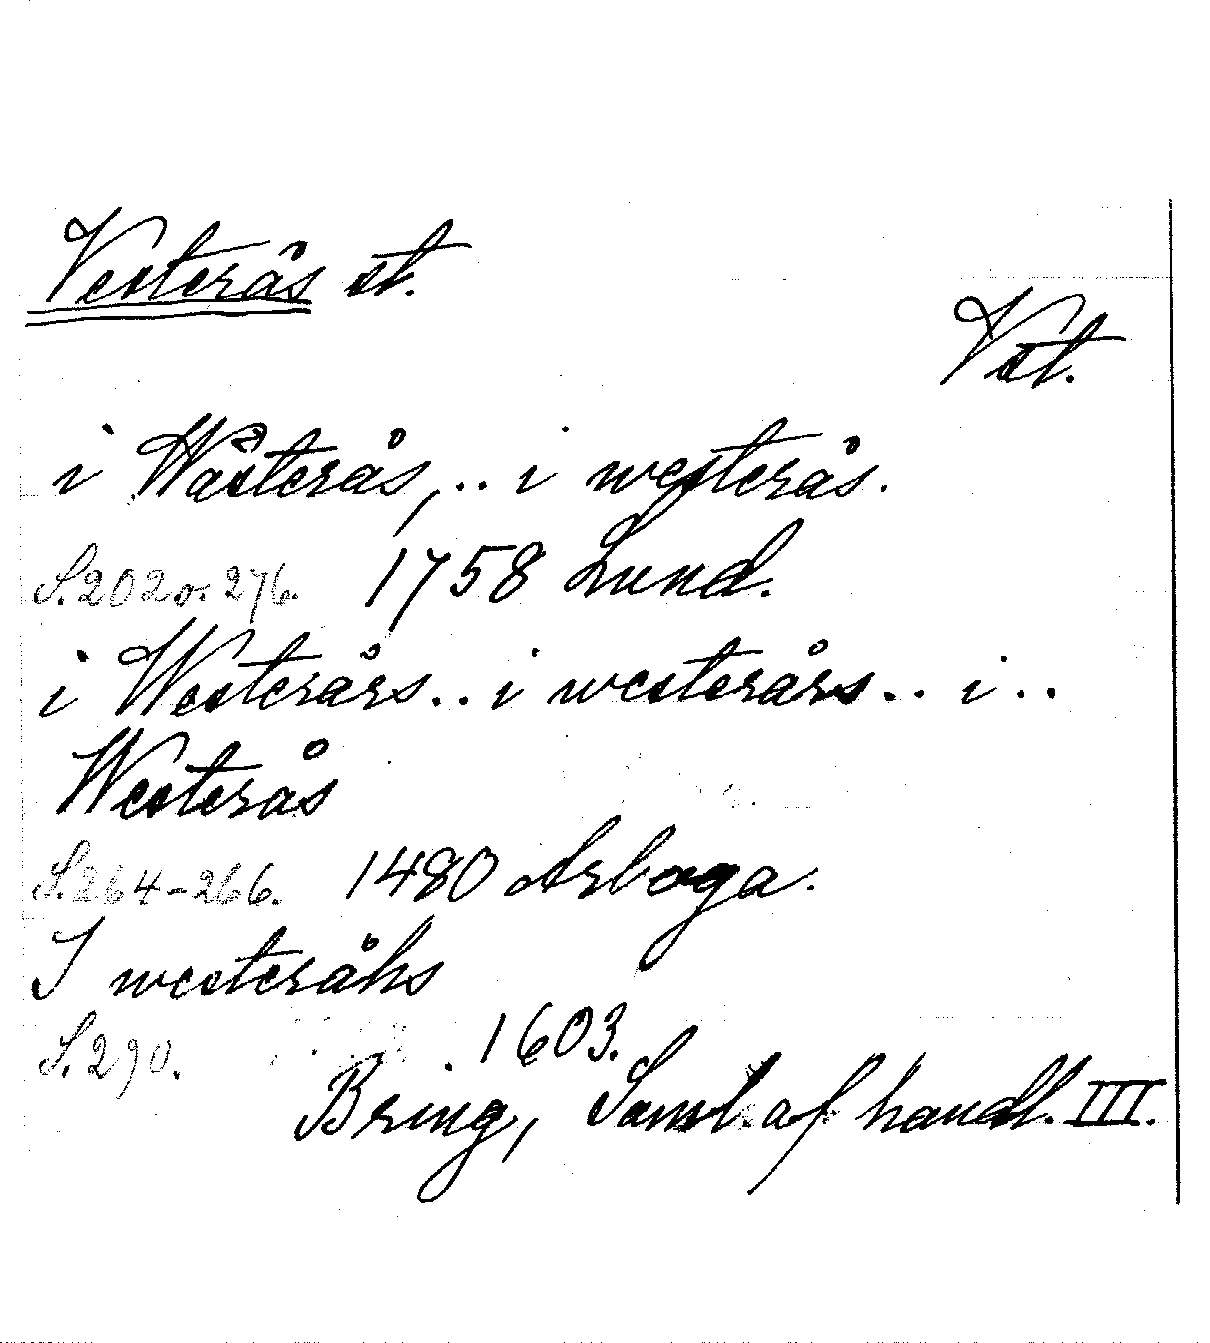 Vesterås st.
Vst.
i Wästerås, .. i westerås.
S. 202 o. 276. 1758 Lund.
i Westerårs .. i westerårs .. i ..
Westerås
S. 264-266. 1480 Arboga.
I westeråhs
S. 290. 1603.
Bring, Saml. af handl. III.